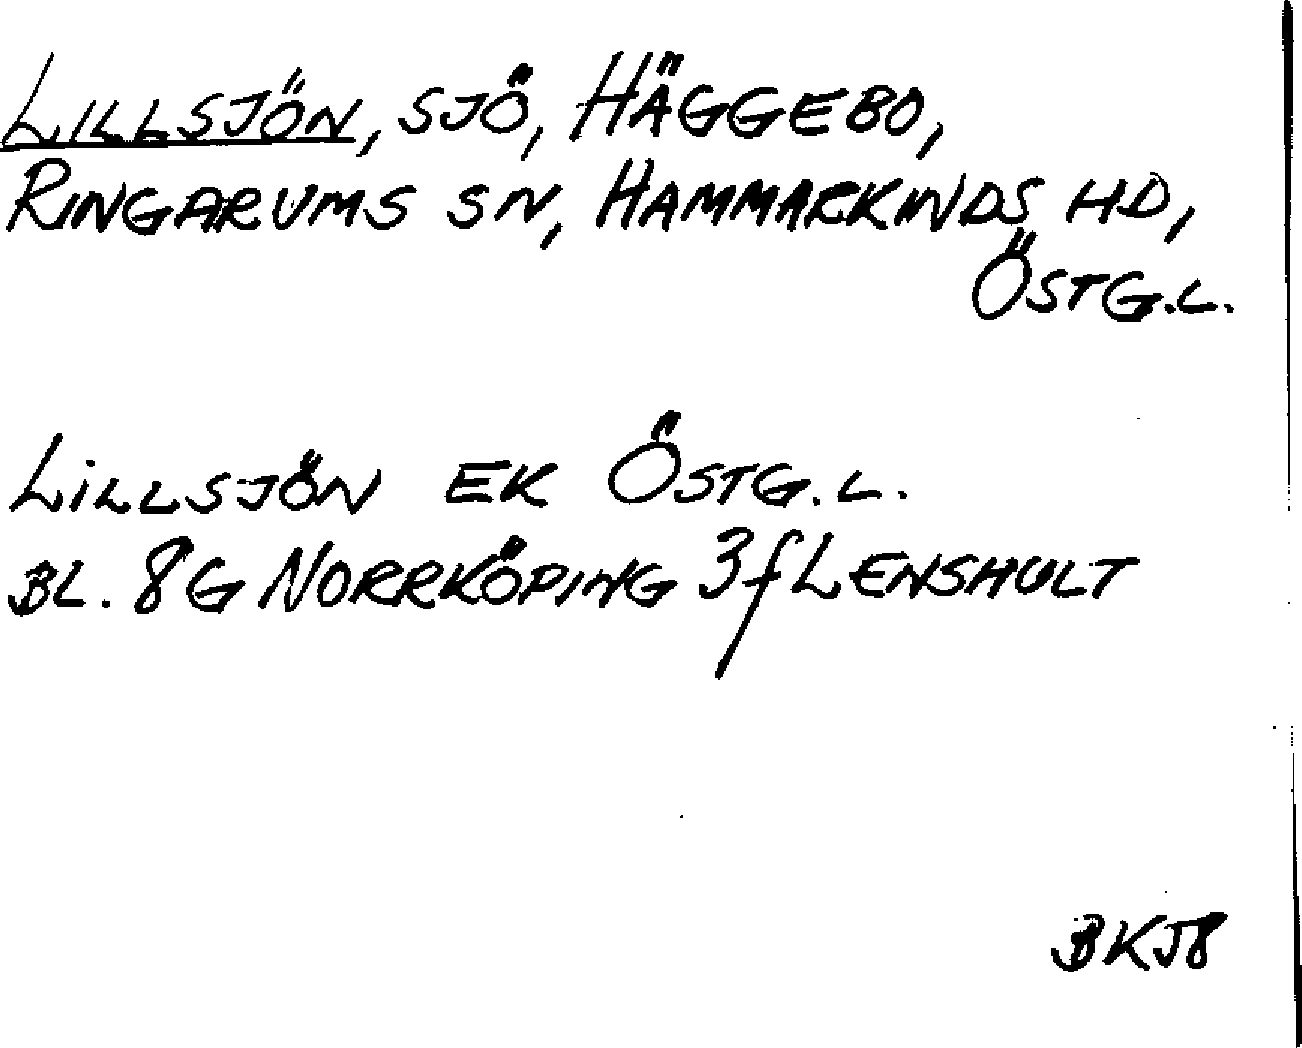 LILLSJÖN, SJÖ, HÄGGEBO,
RINGARUMS SN, HAMMARKINDS HD,
ÖSTG.L.
LILLSJÖN EK ÖSTG.L.
BL. 8G NORRKÖPING 3f LENSHULT
BKJ8